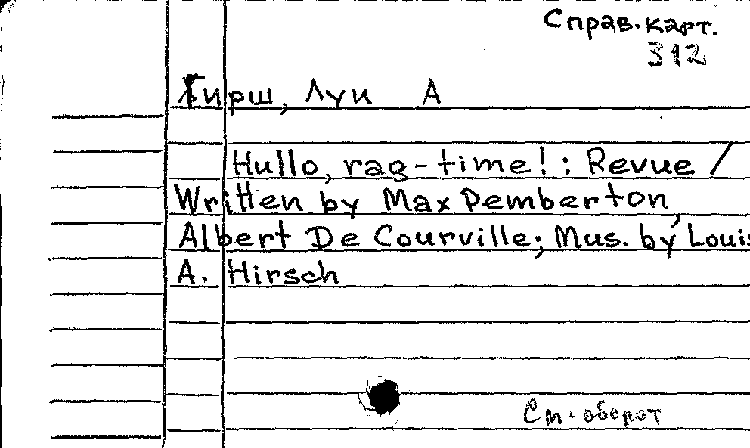 Справ. карт.
312
Гирш, Луи А
Hullo, rag-time! : Revue /
Written by Max Pemberton,
Albert De Courville; Mus. by Louis
A. Hirsch
См. оборот